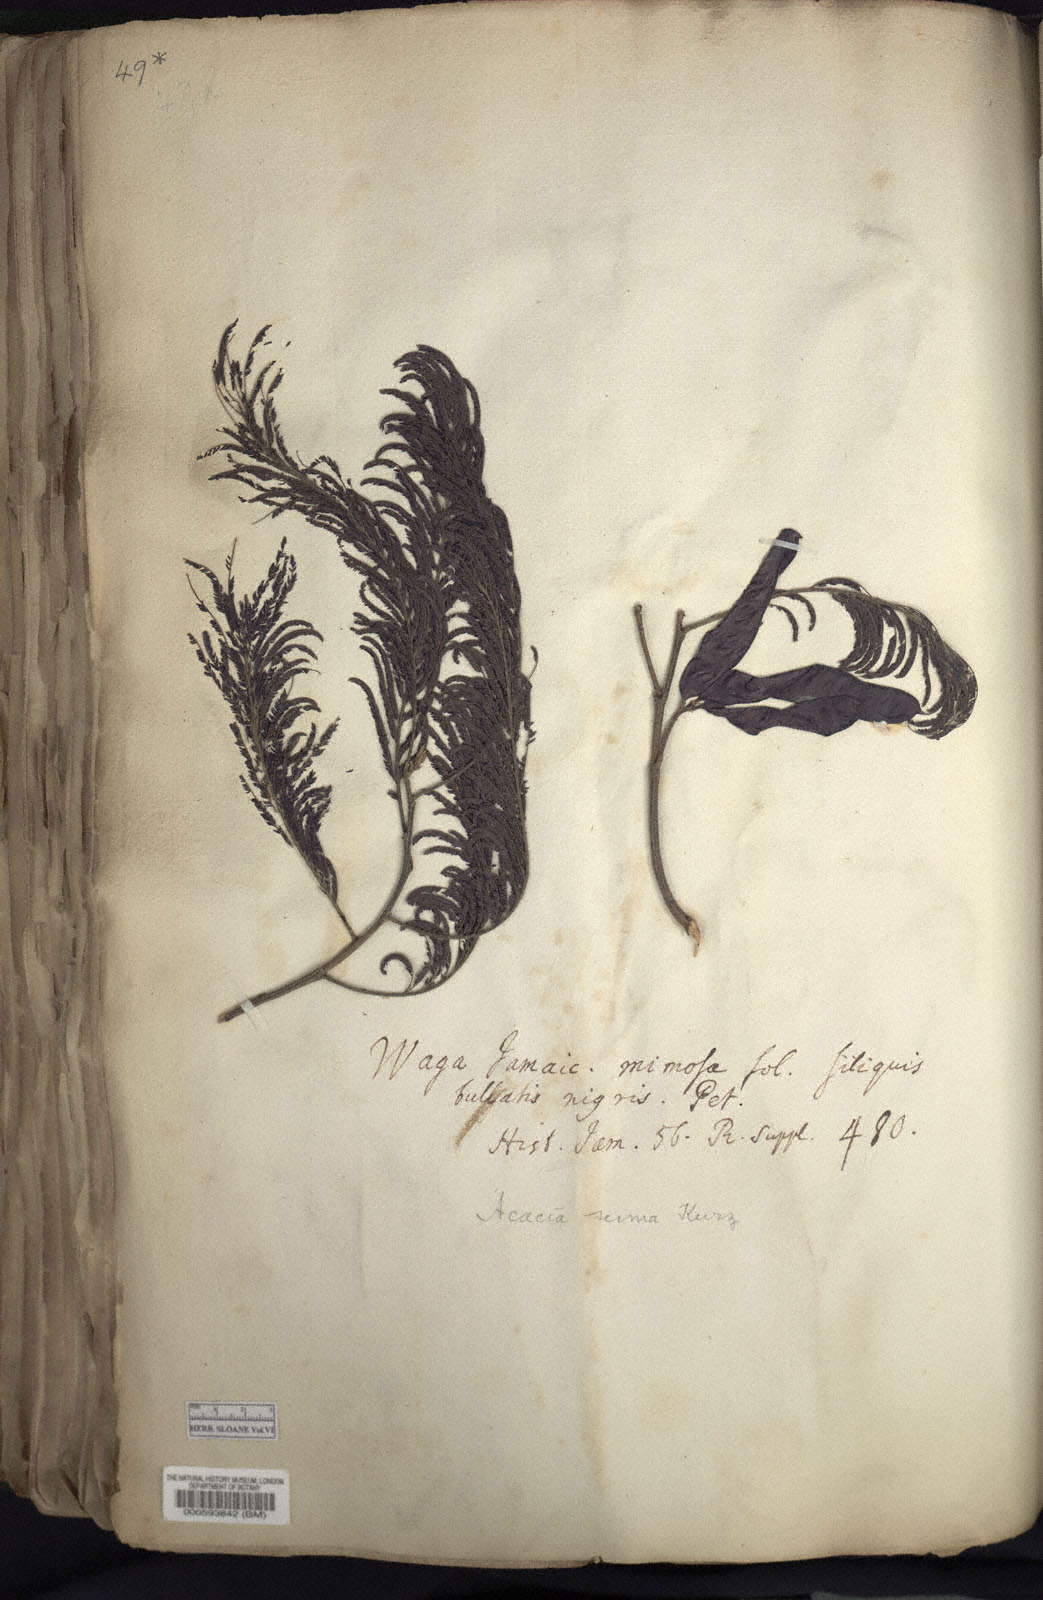 49*
Waga Jamaic. mimosæ fol. siliquis
bullatis nigris. Pet.
Hist. Jam. 56. R. Suppl. 480.
Acacia suma Kurz
HERB. SLOANE Vol. VI
THE NATURAL HISTORY MUSEUM, LONDON
DEPARTMENT OF BOTANY
000593642 (BM)